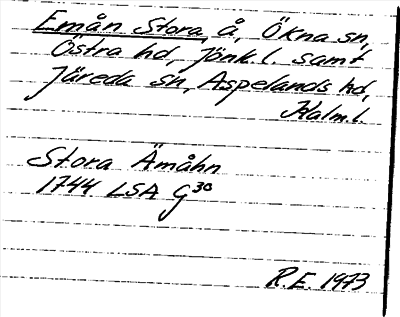 Emån Stora, å, Ökna sn,
Östra hd, Jönk. l. samt
Järeda sn, Aspelands hd,
Kalm. l.
Stora Ämåhn
1744 LSA G30
R.E. 1973